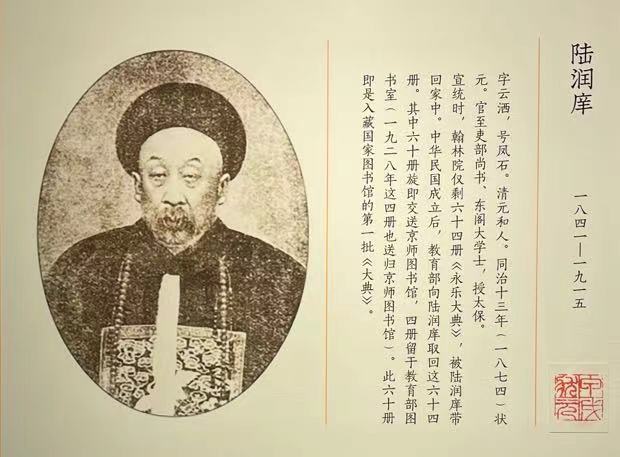 陆润庠
一八四一—一九一五
字云洒，号凤石。清元和人。同治十三年（一八七四）状
元。官至吏部尚书、东阁大学士，授太保。
宣统时，翰林院仅剩六十四册《永乐大典》，被陆润庠带
回家中。中华民国成立后，教育部向陆润庠取回这六十四
册。其中六十册旋即交送京师图书馆，四册留于教育部图
书室（一九二八年这四册也送归京师图书馆）。此六十册
即是入藏国家图书馆的第一批《大典》。